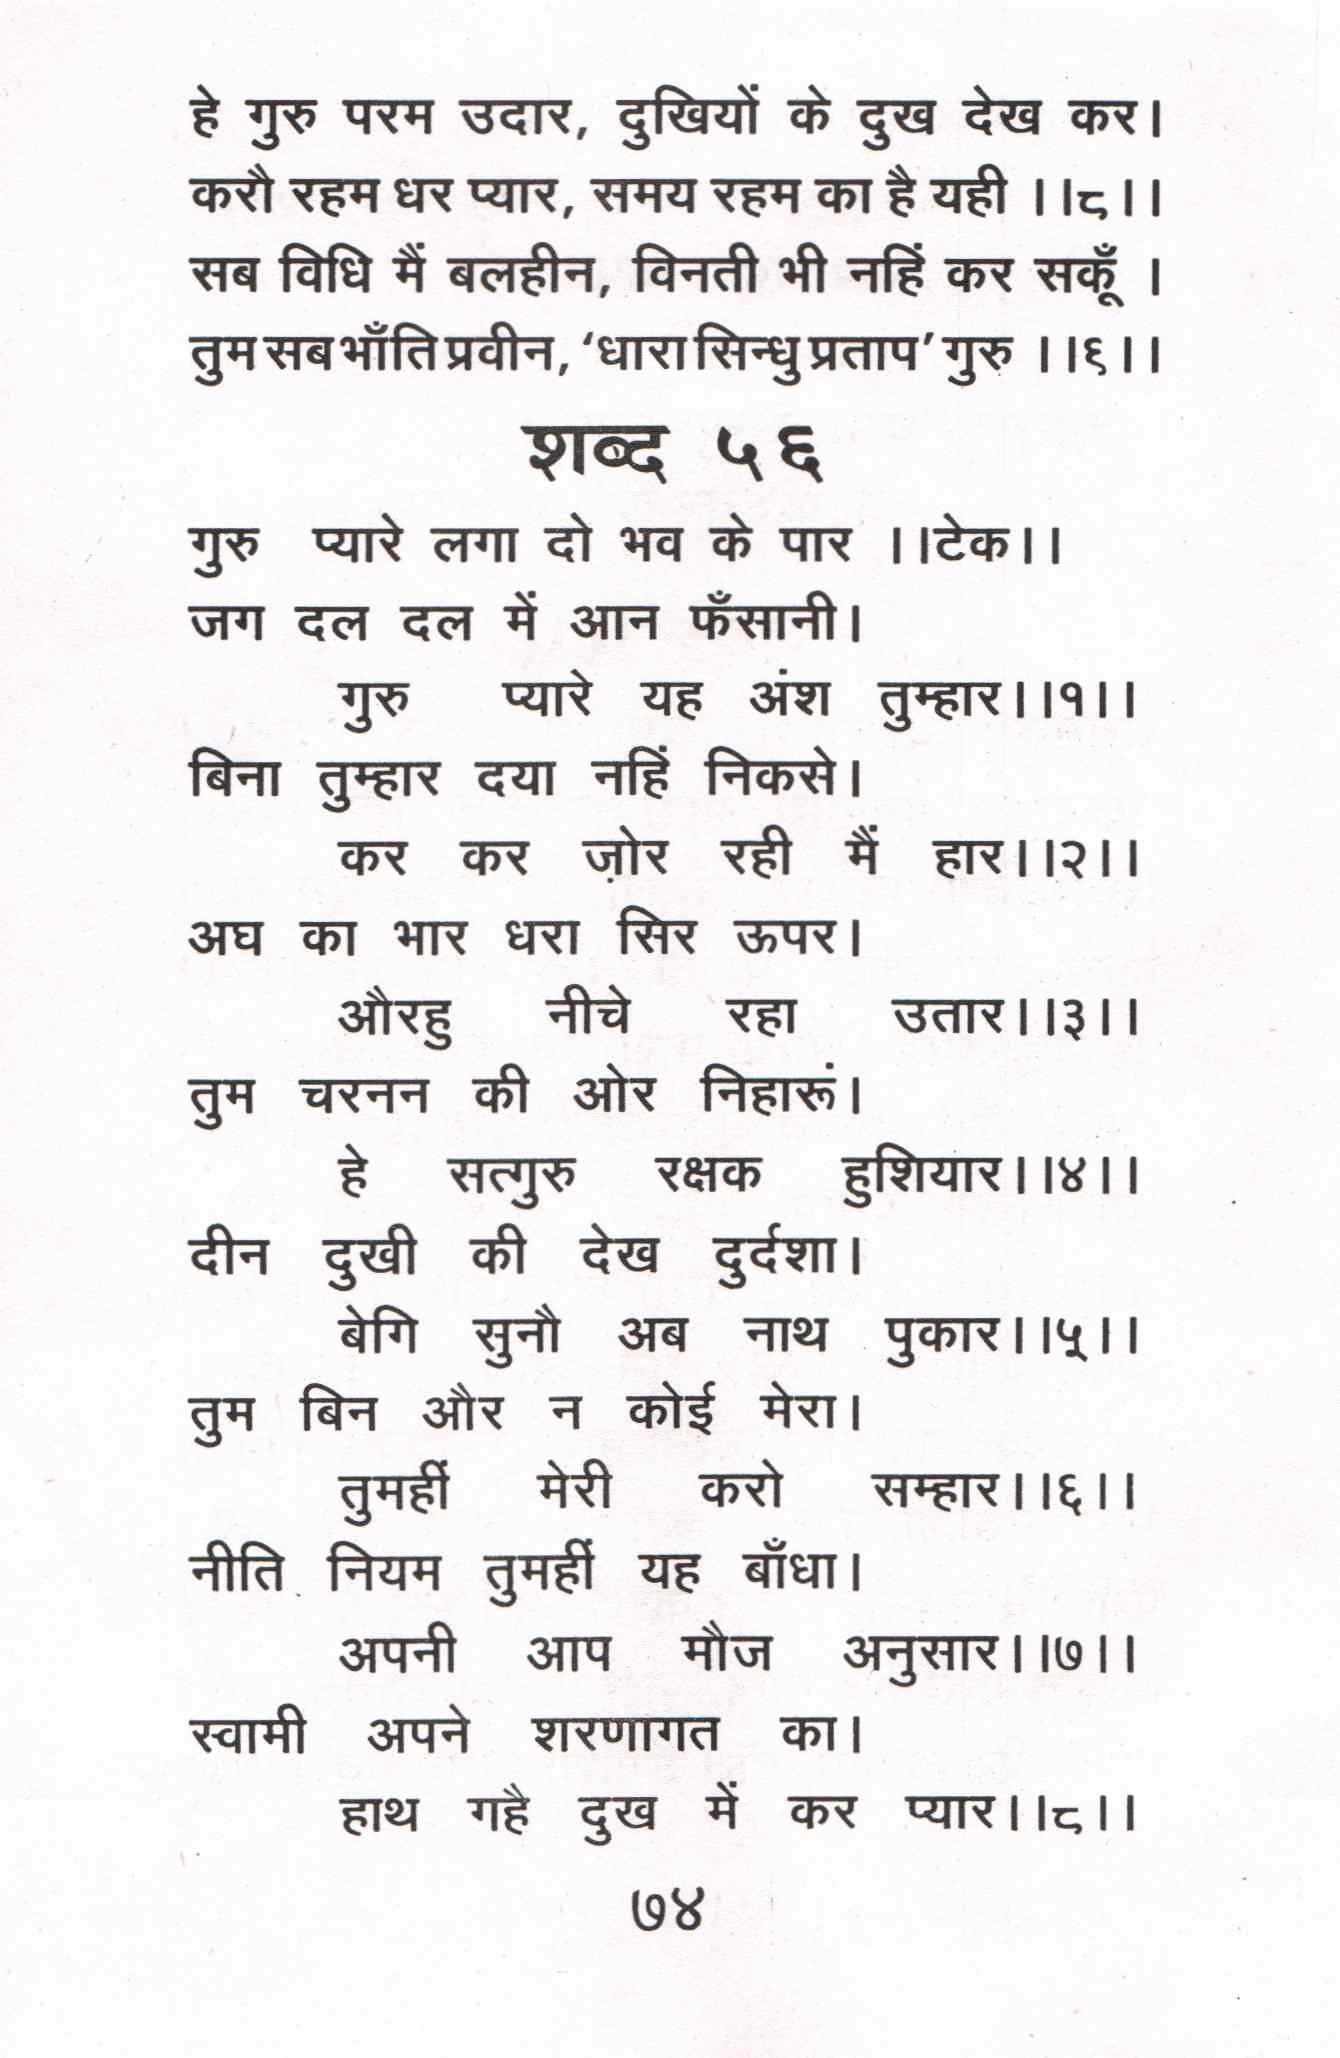 हे गुरु परम उदार, दुखियों के दुख देख कर।
करौ रहम धर प्यार, समय रहम का है यही ।।८।।
सब विधि मैं बलहीन, विनती भी नहिं कर सकूँ ।
तुम सब भाँति प्रवीन, ‘धारा सिन्धु प्रताप’ गुरु ।।६।।
शब्द ५६
गुरु प्यारे लगा दो भव के पार ।।टेक।।
जग दल दल में आन फँसानी।
गुरु प्यारे यह अंश तुम्हार।।१।।
बिना तुम्हार दया नहिं निकसे।
कर कर ज़ोर रही मैं हार।।२।।
अघ का भार धरा सिर ऊपर।
औरहु नीचे रहा उतार।।३।।
तुम चरनन की ओर निहारूं।
हे सत्गुरु रक्षक हुशियार।।४।।
दीन दुखी की देख दुर्दशा।
बेगि सुनौ अब नाथ पुकार।।५।।
तुम बिन और न कोई मेरा।
तुमहीं मेरी करो सम्हार।।६।।
नीति नियम तुमहीं यह बाँधा।
अपनी आप मौज अनुसार।।७।।
स्वामी अपने शरणागत का।
हाथ गहै दुख में कर प्यार।।८।।
७४